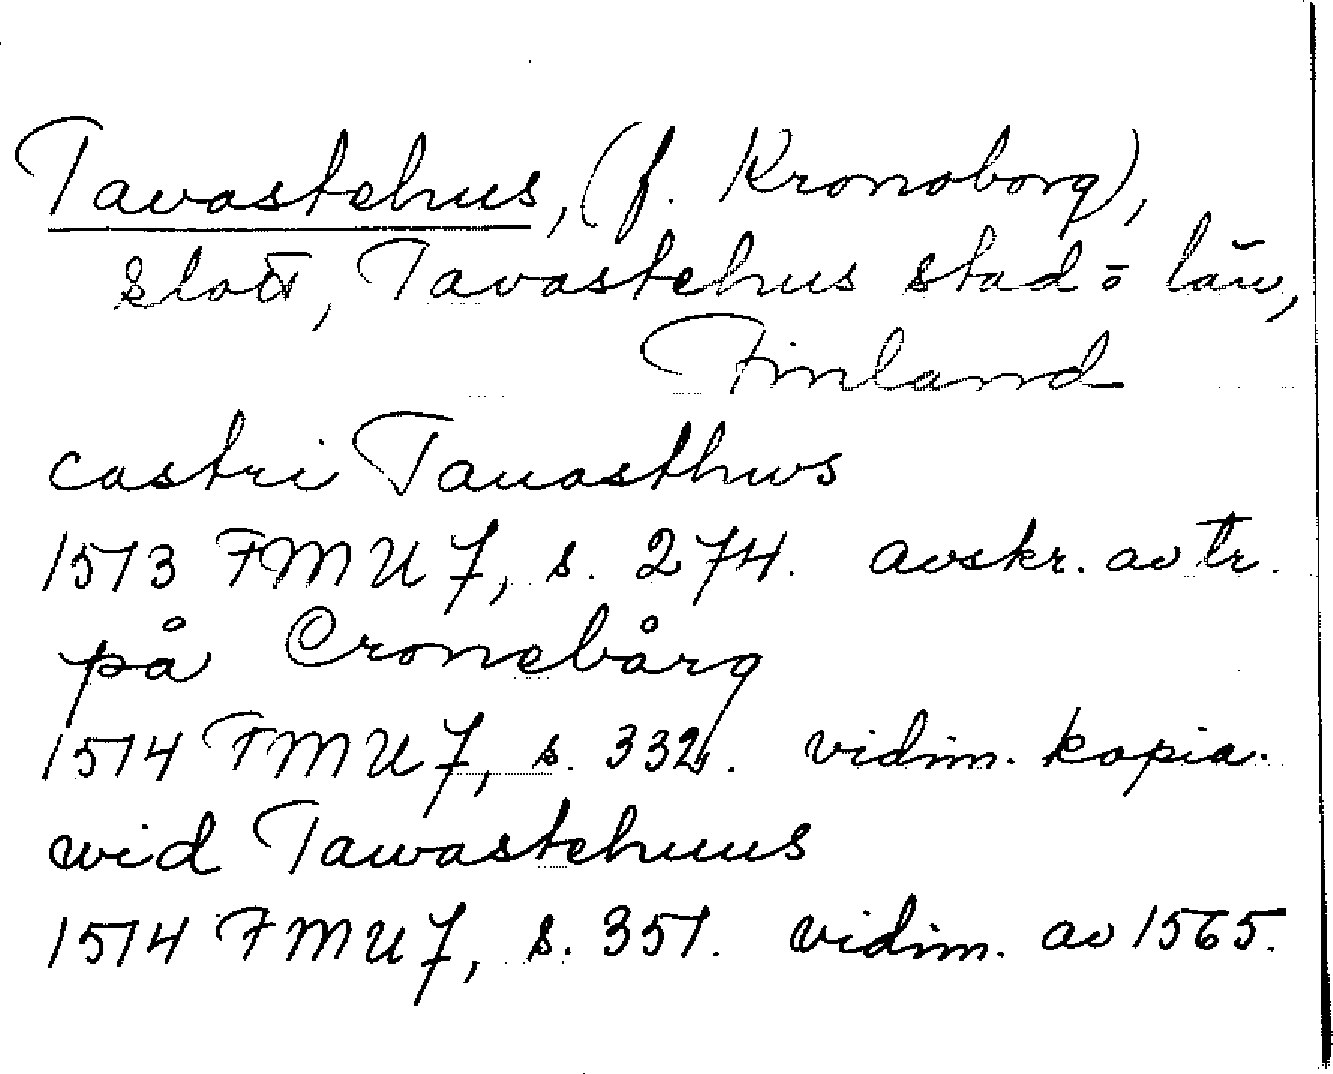 Tavastehus, (f. Kronoborg),
slott, Tavastehus stad o län,
Finland
castri Tauasthws
1513 FMU 7, s. 274. avskr. av tr.
på Cronebårg
1514 FMU 7, s. 332. vidim. kopia.
wid Tawastehuus
1514 FMU 7, s. 351. vidim. av 1565.